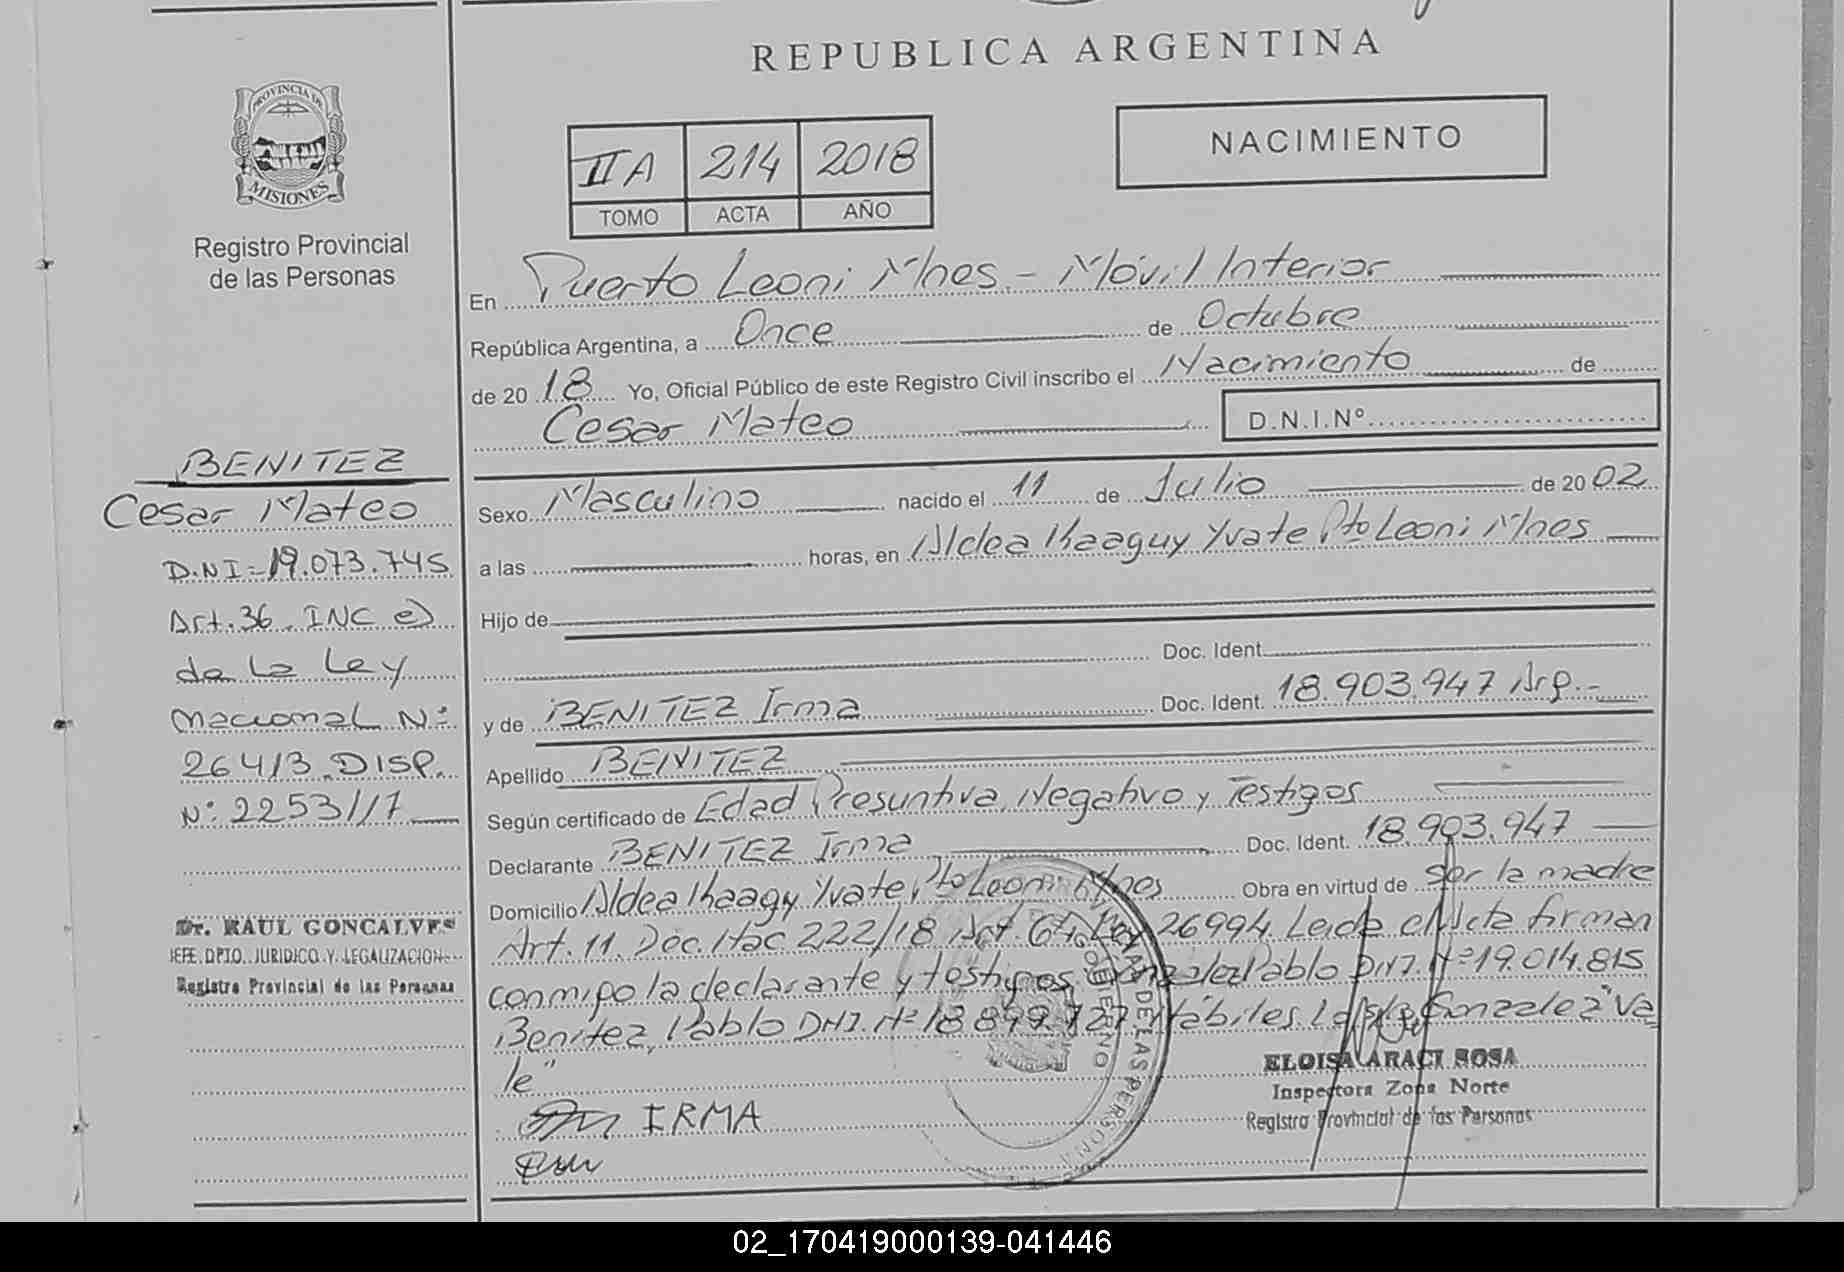 REPUBLICA ARGENTINA
PROVINCIA DE
MISIONES
Registro Provincial
de las Personas
IIA 214 2018
TOMO ACTA AÑO
NACIMIENTO
En Puerto Leoni Mnes.- Móvil Interior
República Argentina, a Once de Octubre
de 20 18 Yo, Oficial Público de este Registro Civil inscribo el Nacimiento de
Cesar Mateo D.N.I.Nº
Sexo Masculino nacido el 11 de Julio de 20 02
a las horas, en Aldea Kaaguy Yvate Pto Leoni Mnes
Hijo de
Doc. Ident.
y de BENITEZ Irma Doc. Ident. 18.903.947 Arg.-
Apellido BENITEZ
Según certificado de Edad Presuntiva, Negativo y Testigos
Declarante BENITEZ Irma Doc. Ident. 18.903.947
Domicilio Aldea Kaaguy Yvate, Pto Leoni Mnes Obra en virtud de ser la madre
Art. 11. Dec. Hac 222/18 Art. 64 Ley 26994. Leida el Acta firman
conmigo la declarante y testigos Gonzalez Pablo DNI. Nº 19.014.815
Benitez, Pablo DNI. Nº 18.899.727. Hábiles. Gonzalez "Va
le"
IRMA
ELOISA ARACI SOSA
Inspectora Zona Norte
Registro Provincial de las Personas
DE LAS PERSON
BENITEZ
Cesar Mateo
D.N.I = 19.073.745
Art. 36. INC e)
de La Ley
nacional N:
26413. DISP.
N: 2253/17
Dr. RAUL GONCALVES
JEFE DPTO. JURIDICO Y LEGALIZACION
Registro Provincial de las Personas
02_170419000139-041446